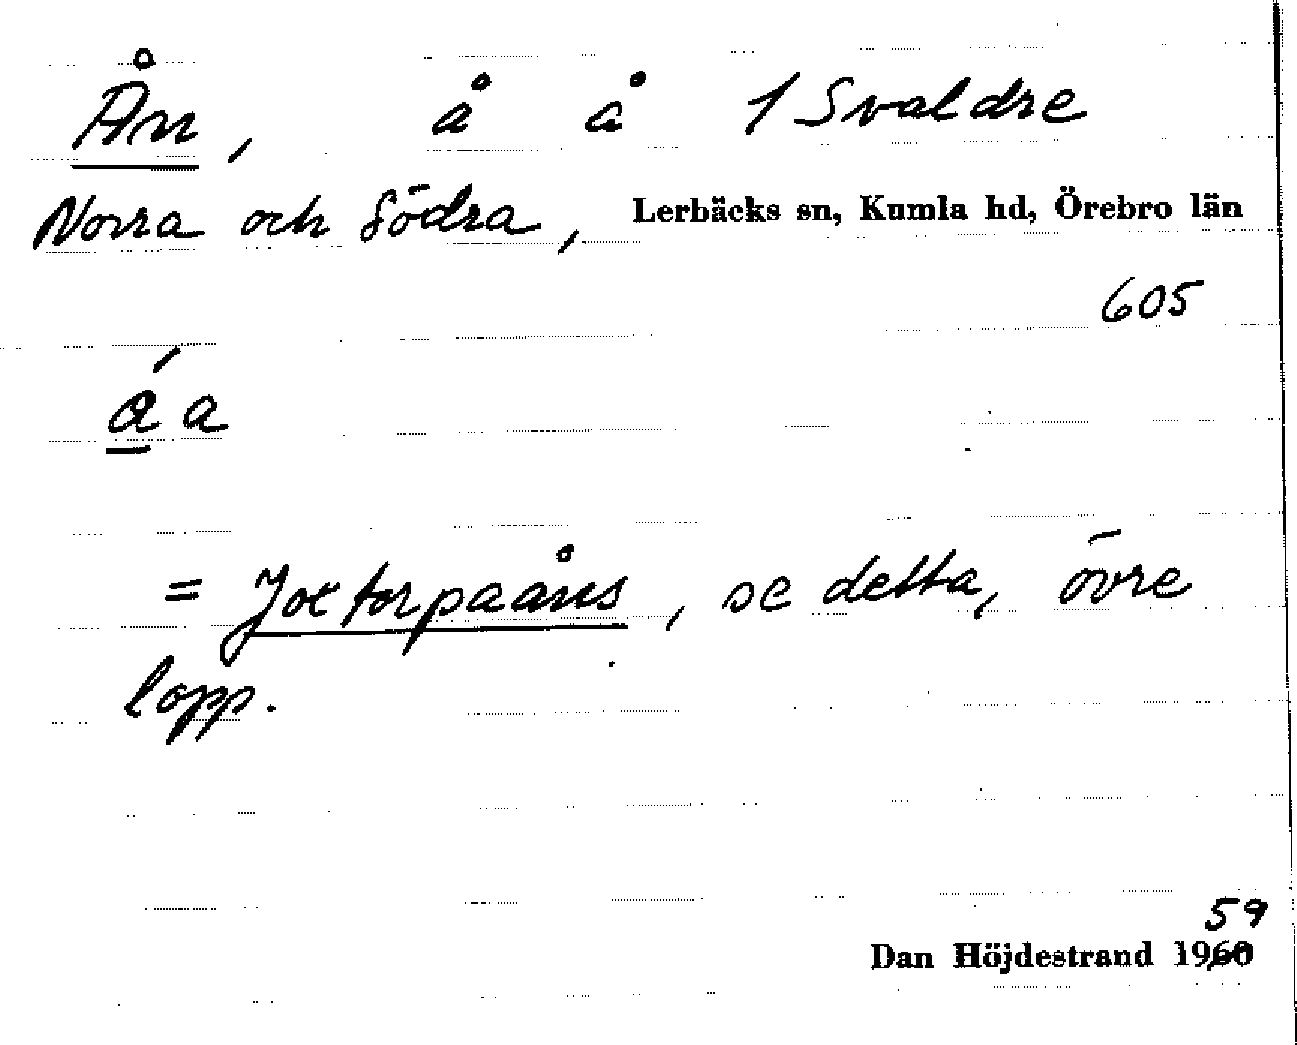 Ån, å å 1 Svaldre
Norra och Södra, Lerbäcks sn, Kumla hd, Örebro län
605
á a
= Joxtorpaåns, se detta, övre
lopp.
59
Dan Höjdestrand 1960